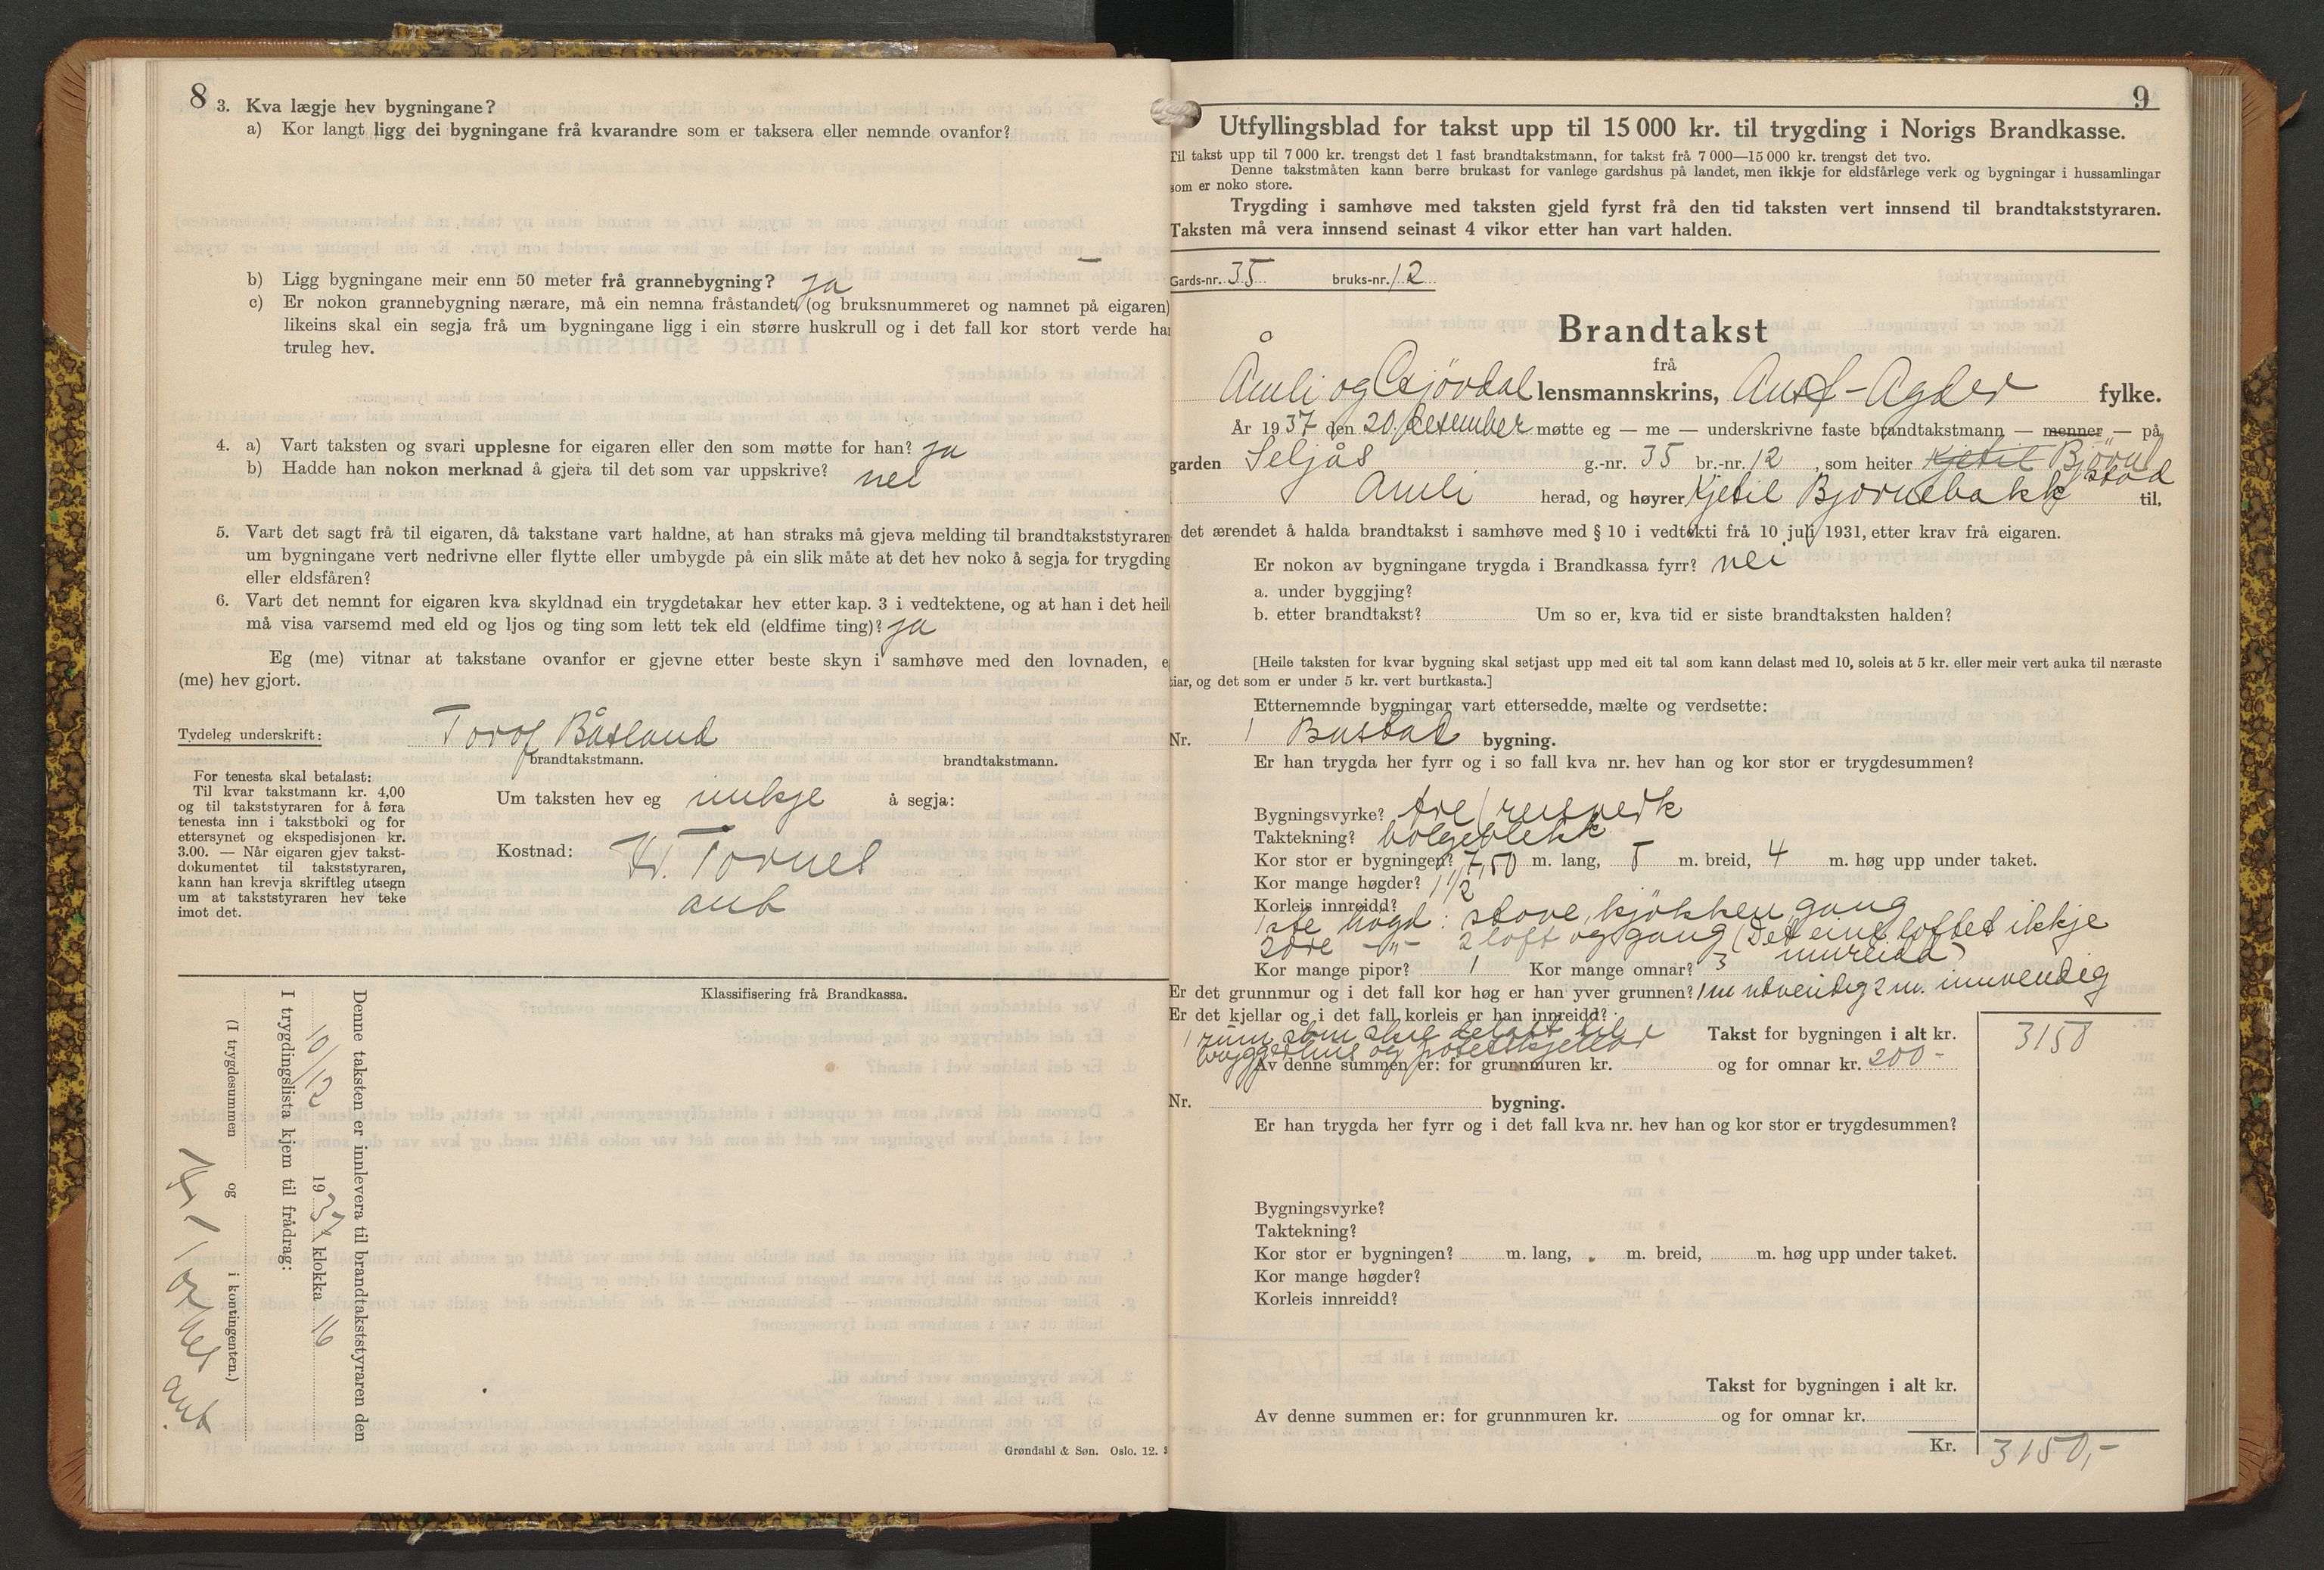 8
3. Kva lægje hev bygningane?
a) Kor langt ligg dei bygningane frå kvarandre som er taksera eller nemnde ovanfor?
b) Ligg bygningane meir enn 50 meter frå grannebygning? ja
c) Er nokon grannebygning nærare, må ein nemna fråstandet (og bruksnummeret og namnet på eigaren)
likeins skal ein segja frå um bygningane ligg i ein større huskrull og i det fall kor stort verde han
truleg hev.
4. a) Vart taksten og svari upplesne for eigaren eller den som møtte for han? ja
b) Hadde han nokon merknad å gjera til det som var uppskrive? nei
5. Vart det sagt frå til eigaren, då takstane vart haldne, at han straks må gjeva melding til brandtakststyraren
um bygningane vert nedrivne eller flytte eller umbygde på ein slik måte at det hev noko å segja for trygding
eller eldsfåren?
6. Vart det nemnt for eigaren kva skyldnad ein trygdetakar hev etter kap. 3 i vedtektene, og at han i det heil
må visa varsemd med eld og ljos og ting som lett tek eld (eldfime ting)? ja
Eg (me) vitnar at takstane ovanfor er gjevne etter beste skyn i samhøve med den lovnaden, e
(me) hev gjort.
Tydeleg underskrift: Torof Båsland
brandtakstmann. brandtakstmann.
For tenesta skal betalast:
Til kvar takstmann kr. 4,00
og til takststyraren for å føra
tenesta inn i takstboki og for
ettersynet og ekspedisjonen kr.
3.00. — Når eigaren gjev takst-
dokumentet til takststyraren,
kann han krevja skriftleg utsegn
um at takststyraren hev teke
imot det.
Um taksten hev eg inukje å segja:
Kostnad: H. Tornes
aut
Klassifisering frå Brandkassa.
Denne taksten er innlevera til brandtakststyraren den
10/12 1937 klokka 16
I trygdingslista kjem til frådrag:
(I trygdesummen og i kontingenten.)
H Tornes
aut
Grøndahl & Søn. Oslo. 12.
9
Utfyllingsblad for takst upp til 15 000 kr. til trygding i Norigs Brandkasse.
Til takst upp til 7 000 kr. trengst det 1 fast brandtakstmann, for takst frå 7 000—15 000 kr. trengst det tvo.
Denne takstmåten kann berre brukast for vanlege gardshus på landet, men ikkje for eldsfårlege verk og bygningar i hussamlingar
som er noko store.
Trygding i samhøve med taksten gjeld fyrst frå den tid taksten vert innsend til brandtakststyraren.
Taksten må vera innsend seinast 4 vikor etter han vart halden.
Gards-nr. 35 bruks-nr. 12
Brandtakst
frå
Åmli og Gjövdal lensmannskrins, Aust-Agder fylke.
År 1937 den 20. desember møtte eg — me — underskrivne faste brandtakstmann — menner — på
garden Seljås g.-nr. 35 br.-nr. 12, som heiter Kjetil Björn
stad
Åmli herad, og høyrer Kjetil Bjornebakk til,
det ærendet å halda brandtakst i samhøve med § 10 i vedtekti frå 10 juli 1931, etter krav frå eigaren.
Er nokon av bygningane trygda i Brandkassa fyrr? nei
a. under byggjing?
b. etter brandtakst? Um so er, kva tid er siste brandtaksten halden?
[Heile taksten for kvar bygning skal setjast upp med eit tal som kann delast med 10, soleis at 5 kr. eller meir vert auka til næraste
tiar, og det som er under 5 kr. vert burtkasta.]
Etternemnde bygningar vart ettersedde, mælte og verdsette:
Nr. 1 Bustad bygning.
Er han trygda her fyrr og i so fall kva nr. hev han og kor stor er trygdesummen?
Bygningsvyrke? tre/reisverk
Taktekning? bölgeblekk
Kor stor er bygningen? 7,50 m. lang, 5 m. breid, 4 m. høg upp under taket.
Kor mange høgder? 1 1/2
Korleis innreidd?
1ste högd: stove, kjökken, gang
2dre -"- 2 loft og gang (Det eine loftet ikkje
innreidd)
Kor mange pipor? 1 Kor mange omnar? 3
Er det grunnmur og i det fall kor høg er han yver grunnen? 1 m utvendig 2 m. innvendig
Er det kjellar og i det fall korleis er han innreidd?
1 rum som skal delast til
bryggerhus og potetkjellar
Takst for bygningen i alt kr. 3150
Av denne summen er: for grunnmuren kr. og for omnar kr. 200-
Nr. bygning.
Er han trygda her fyrr og i det fall kva nr. hev han og kor stor er trygdesummen?
Bygningsvyrke?
Taktekning?
Kor stor er bygningen? m. lang, m. breid, m. høg upp under taket.
Kor mange høgder?
Korleis innreidd?
Takst for bygningen i alt kr.
Av denne summen er: for grunnmuren kr. og for omnar kr.
Kr. 3150,-